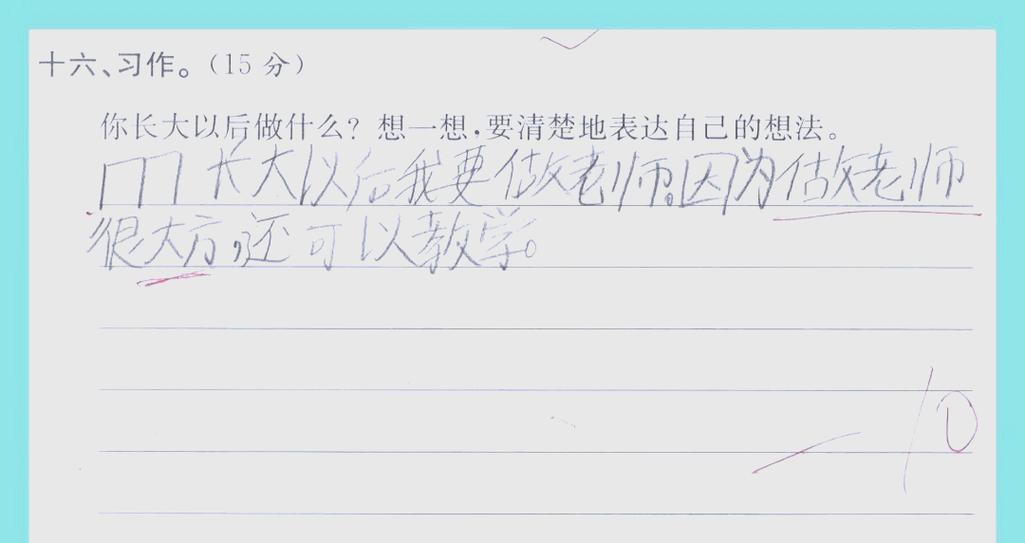 十六、习作。（15 分）
你长大以后做什么？想一想，要清楚地表达自己的想法。
长大以后我要做老师。因为做老师
很大方，还可以教学。
-10